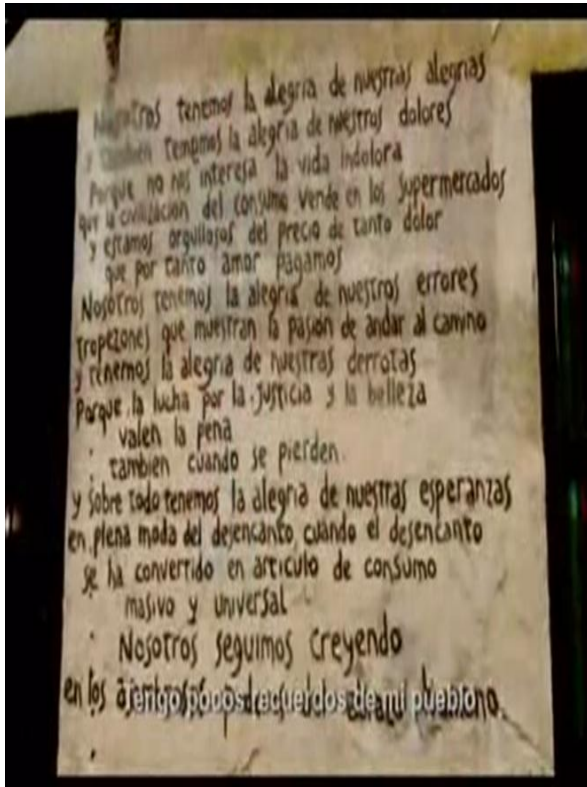 Nosotros tenemos la alegria de nuestras alegrias
y tambien tenemos la alegria de nuestros dolores
Porque no nos interesa la vida indolora
que la civilizacion del consumo vende en los supermercados
y estamos orgullosos del precio de tanto dolor
que por tanto amor pagamos
Nosotros tenemos la alegria de nuestros errores
tropezones que muestran la pasion de andar al camino
y tenemos la alegria de nuestras derrotas
Porque la lucha por la justicia y la belleza
valen la pena
tambien cuando se pierden
y sobre todo tenemos la alegria de nuestras esperanzas
en plena moda del desencanto, cuando el desencanto
se ha convertido en articulo de consumo
masivo y universal
Nosotros seguimos creyendo
en los
Tengo pocos recuerdos de mi pueblo